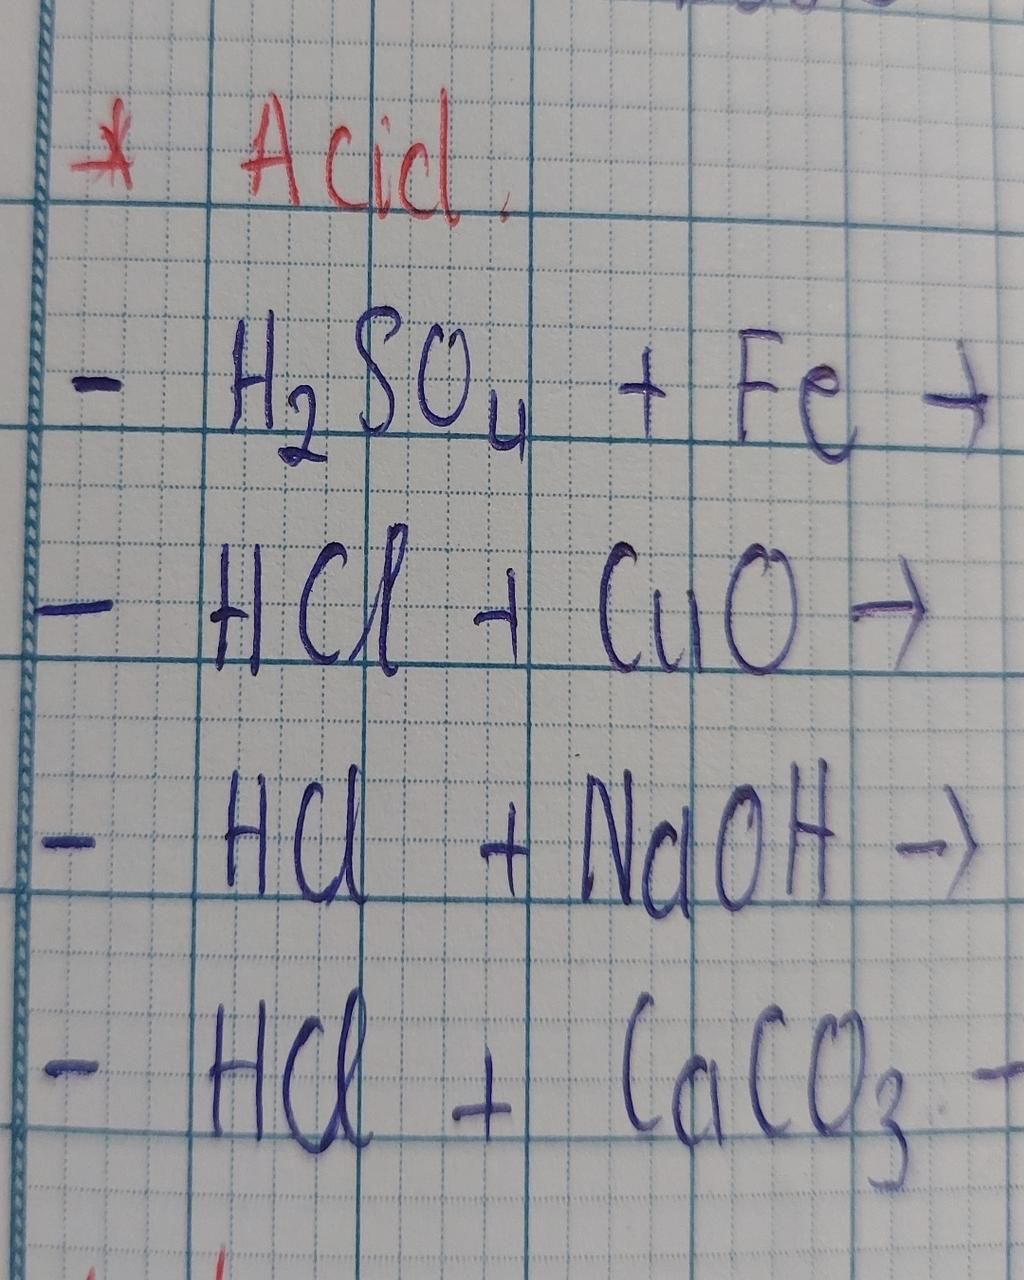 * Acid.
- H₂SO₄ + Fe →
- HCl + CuO →
- HCl + NaOH →
- HCl + CaCO₃ -